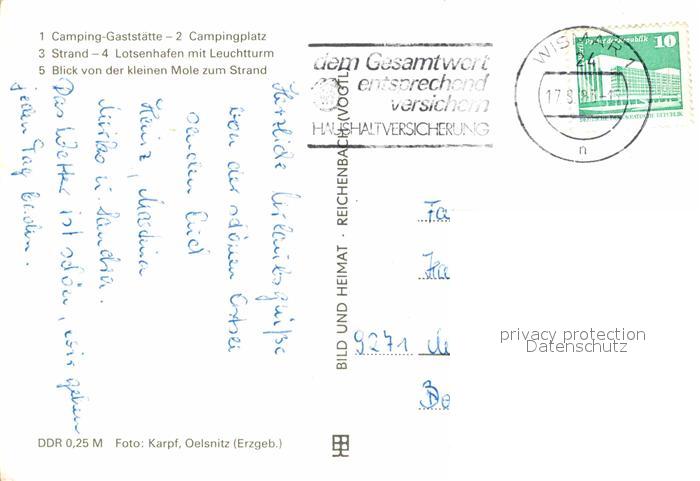 1 Camping-Gaststätte – 2 Campingplatz
3 Strand – 4 Lotsenhafen mit Leuchtturm
5 Blick von der kleinen Mole zum Strand
dem Gesamtwert
entsprechend
versichern
HAUSHALTVERSICHERUNG
WISMAR 1
24
17.8.
n
10
Herzliche Urlaubsgrüße
von der schönen Ostsee
senden Euch
Heinz, Martina
u. Sandra.
Das Wetter ist schön, wir gehen
jeden Tag baden.
BILD UND HEIMAT · REICHENBACH (VOGTL
Fa
9271
privacy protection
Datenschutz
DDR 0,25 M Foto: Karpf, Oelsnitz (Erzgeb.)